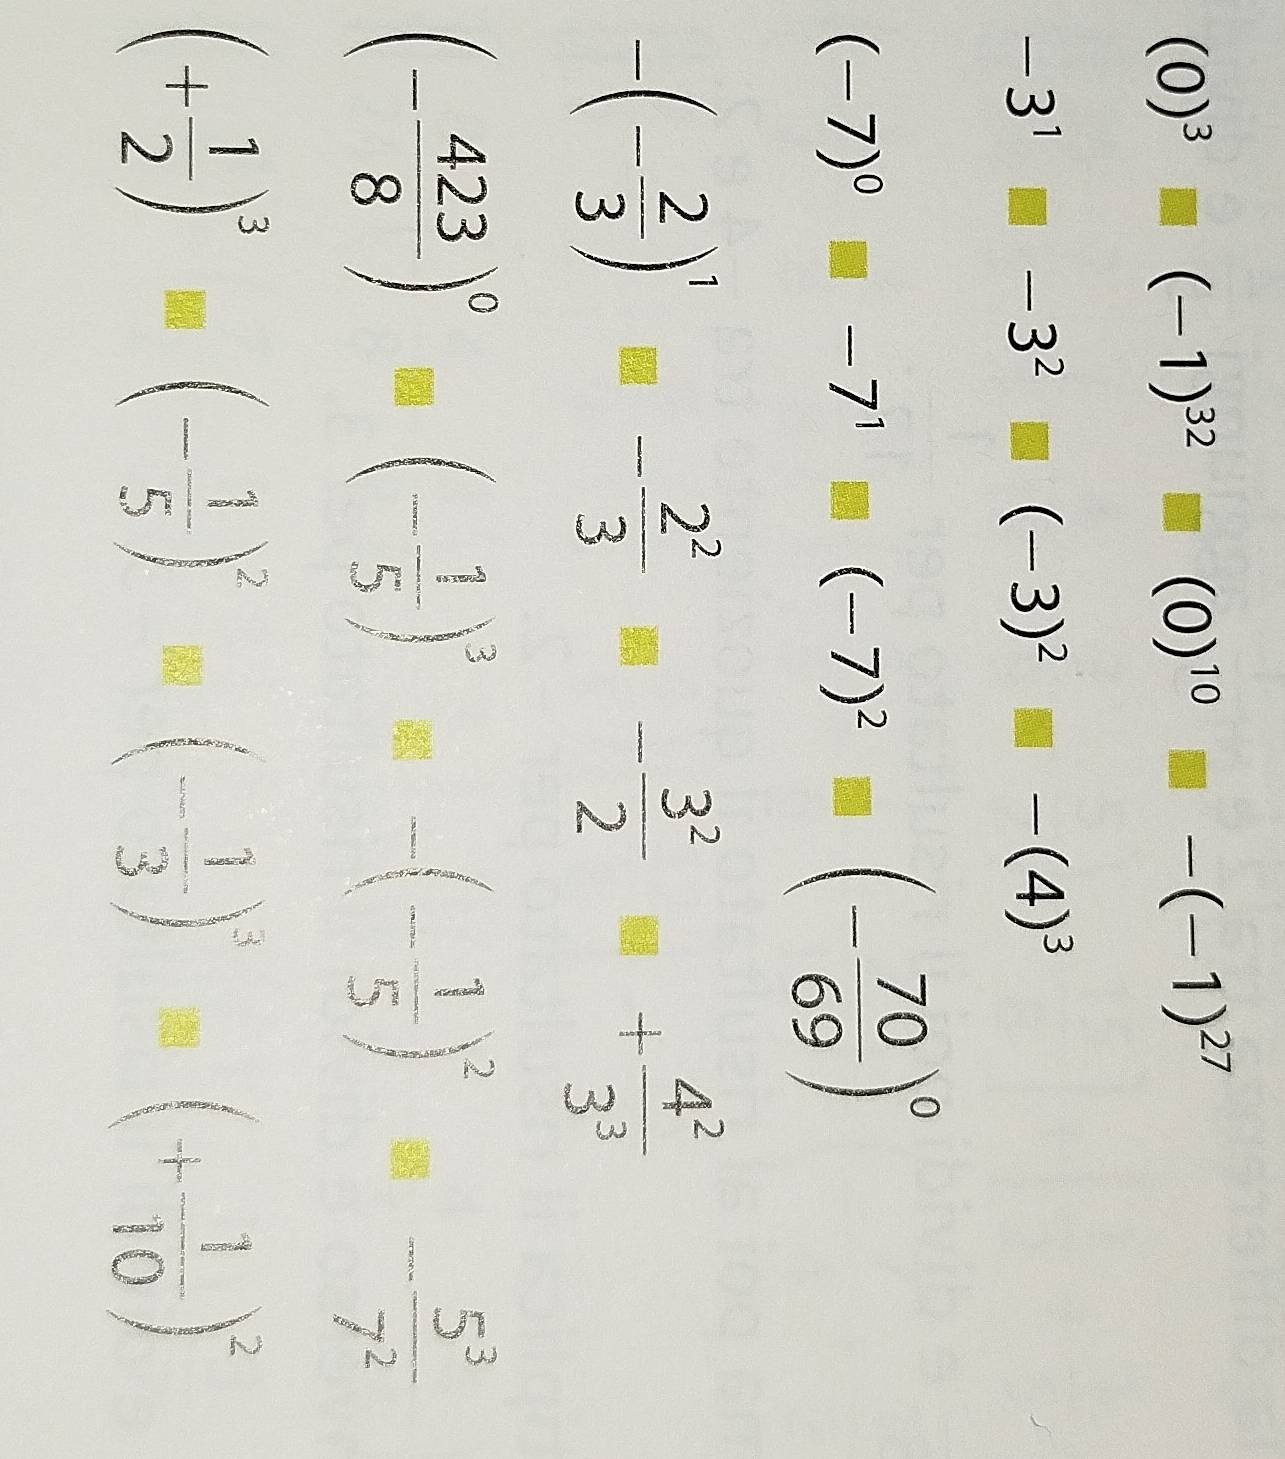 (0)³ ■ (−1)³² ■ (0)¹⁰ ■ −(−1)²⁷
−3¹ ■ −3² ■ (−3)² ■ −(4)³
(−7)⁰ ■ −7¹ ■ (−7)² ■ (−70/69)⁰
−(−2/3)¹ ■ −2²/3 ■ −3²/2 ■ +4²/3³
(−423/8)⁰ ■ (−1/5)³ ■ −(−1/5)² ■ −5³/7²
(+1/2)³ ■ (−1/5)² ■ (−1/3)³ ■ (+1/10)²